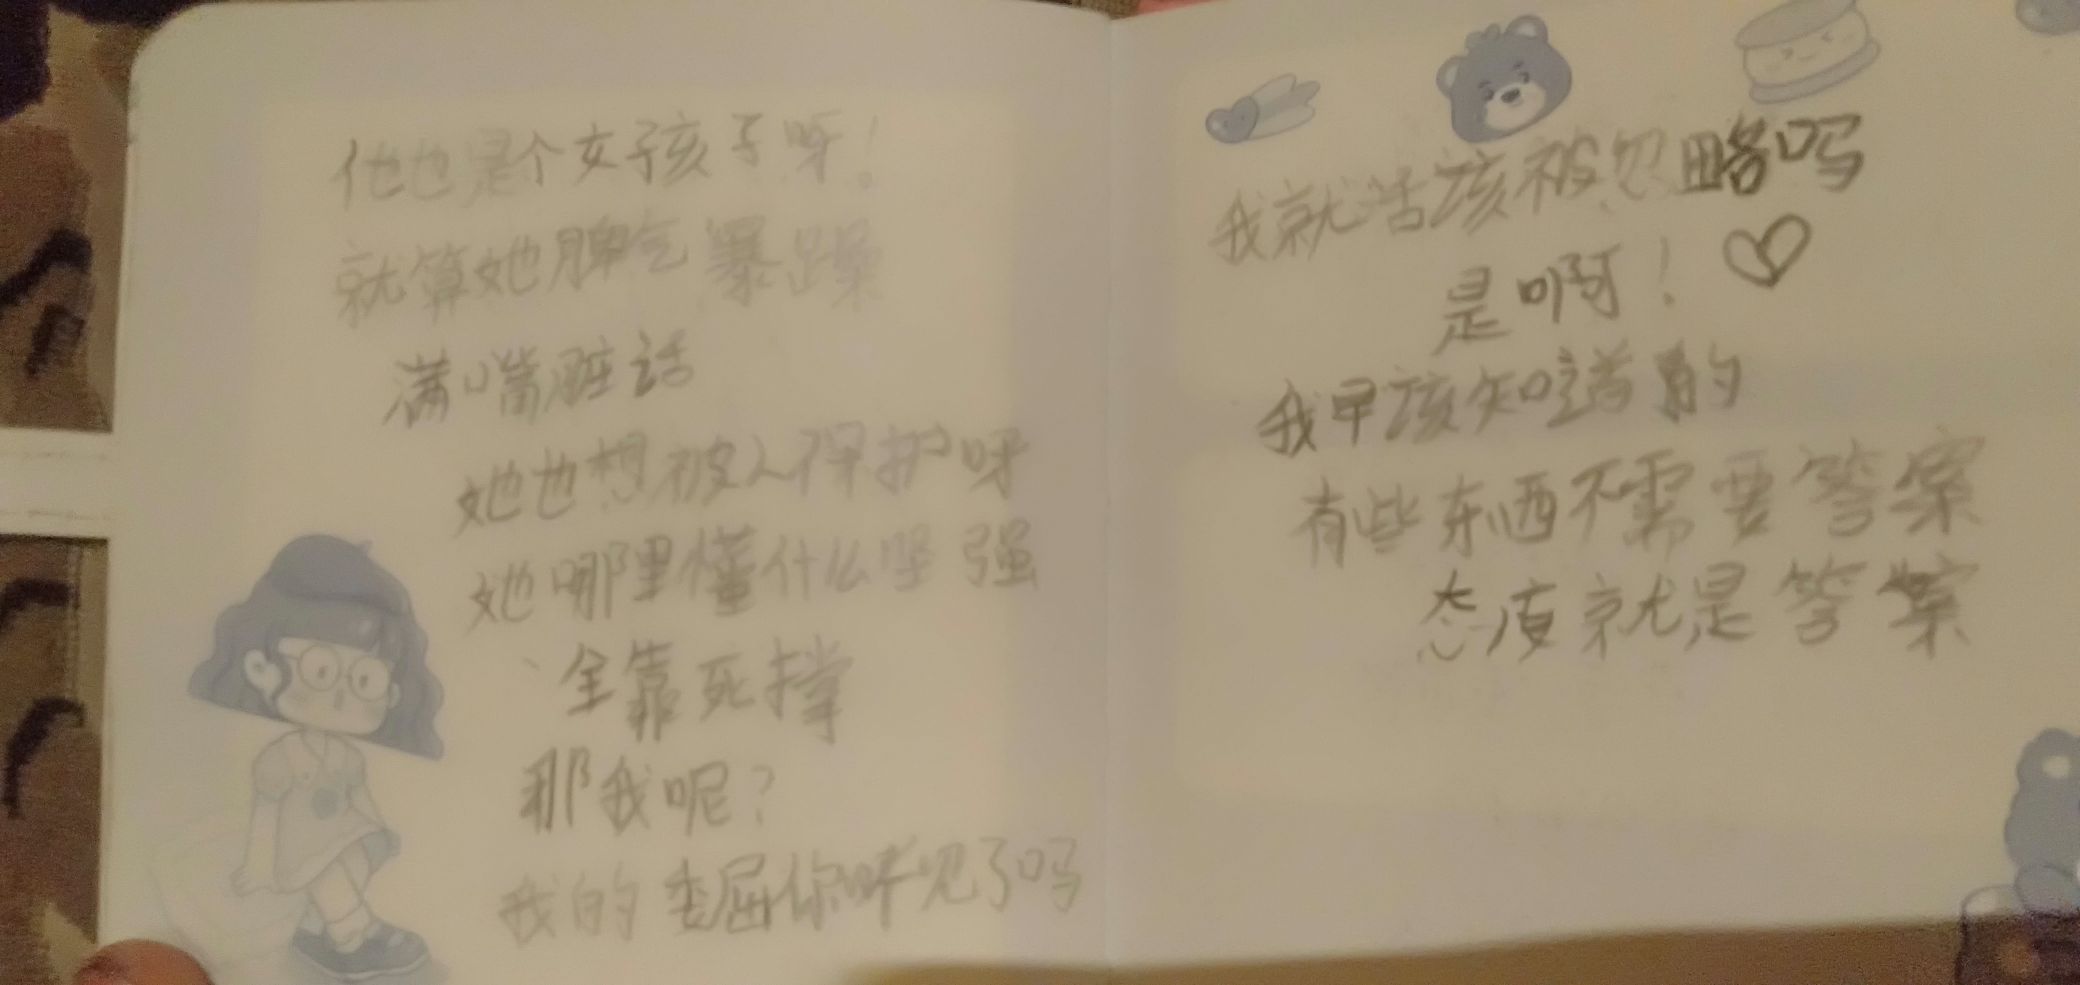 他也是个女孩子呀！
就算她脾气暴躁
满嘴脏话
她也想被人保护呀
她哪里懂什么坚强
全靠死撑
那我呢？
我的委屈你听见了吗
我就活该被忽略吗
是啊！♡
我早该知道的
有些东西不需要答案
态度就是答案